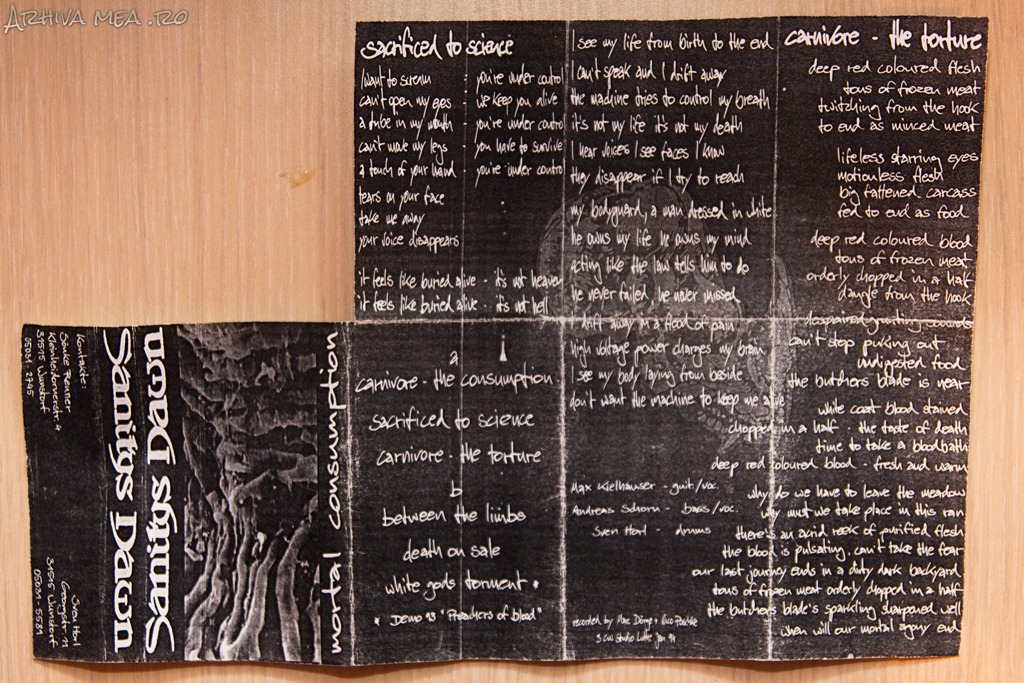 Arhiva mea.ro
sacrificed to science
I want to scream - you're under control
can't open my eyes - we keep you alive
a tube in my mouth - you're under control
can't move my legs - you have to survive
a touch of your hand - you're under control
tears on your face
take me away
your voice disappears
it feels like buried alive - it's not heaven
it feels like buried alive - it's not hell
I see my life from birth to the end
I can't speak and I drift away
the machine tries to control my breath
it's not my life it's not my death
I hear voices I see faces I know
they disappear if I try to reach
my bodyguard, a man dressed in white
he owns my life he owns my mind
acting like the law tells him to do
he never failed, he never missed
I drift away in a flood of pain
high voltage power charges my brain
I see my body laying from beside
don't want the machine to keep me alive
carnivore - the torture
deep red coloured flesh
tons of frozen meat
twitching from the hook
to end as minced meat
lifeless starring eyes
motionless flesh
big fattened carcass
fed to end as food
deep red coloured blood
tons of frozen meat
orderly chopped in a half
dangle from the hook
despaired grunting sounds
can't stop puking out
undigested food
the butchers blade is near
white coat blood stained
chopped in a half - the taste of death
time to take a bloodbath
deep red coloured blood - fresh and warm
why do we have to leave the meadow
why must we take place in this
there's an acrid reek of purified flesh
the blood is pulsating, can't take the fear
our last journey ends in a dark backyard
tons of frozen meat orderly chopped in a half
the butcher's blade's sparkling sharpened well
when will our mortal agony end
Kontakte:
Sönke Renner
31515 Wunstorf
05031-2745
Sven Horl
Georgstr. 11
31515 Wunstorf
05031-5581
Sanitys Dawn
Sanitys Dawn
mortal consumption
a
carnivore - the consumption
sacrificed to science
carnivore - the torture
b
between the limbs
death on sale
white gods torment *
* Demo 93 "Preachers of blood"
Max Kielhauser - guit./voc.
Andreas Schorn - bass/voc.
Sven Horl - drums
recorded by
Studio Jan 94